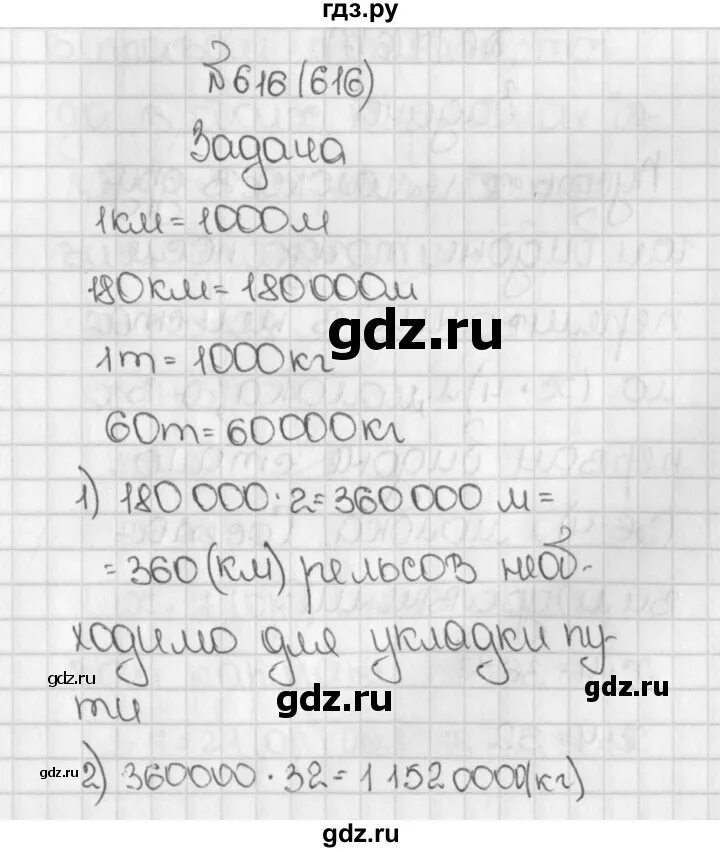 гдз.ру
№616(616)
Задача
1км=1000м
180км=180000м
gdz.ru
1т=1000кг
60т=60000кг
1) 180 000·2=360 000 м=
=360 (км) рельсов необ-
ходимо для укладки пу-
gdz.ru
gdz.ru
gdz.ru
ти
gdz.ru
2) 360000·32=11520000(кг)
gdz.ru